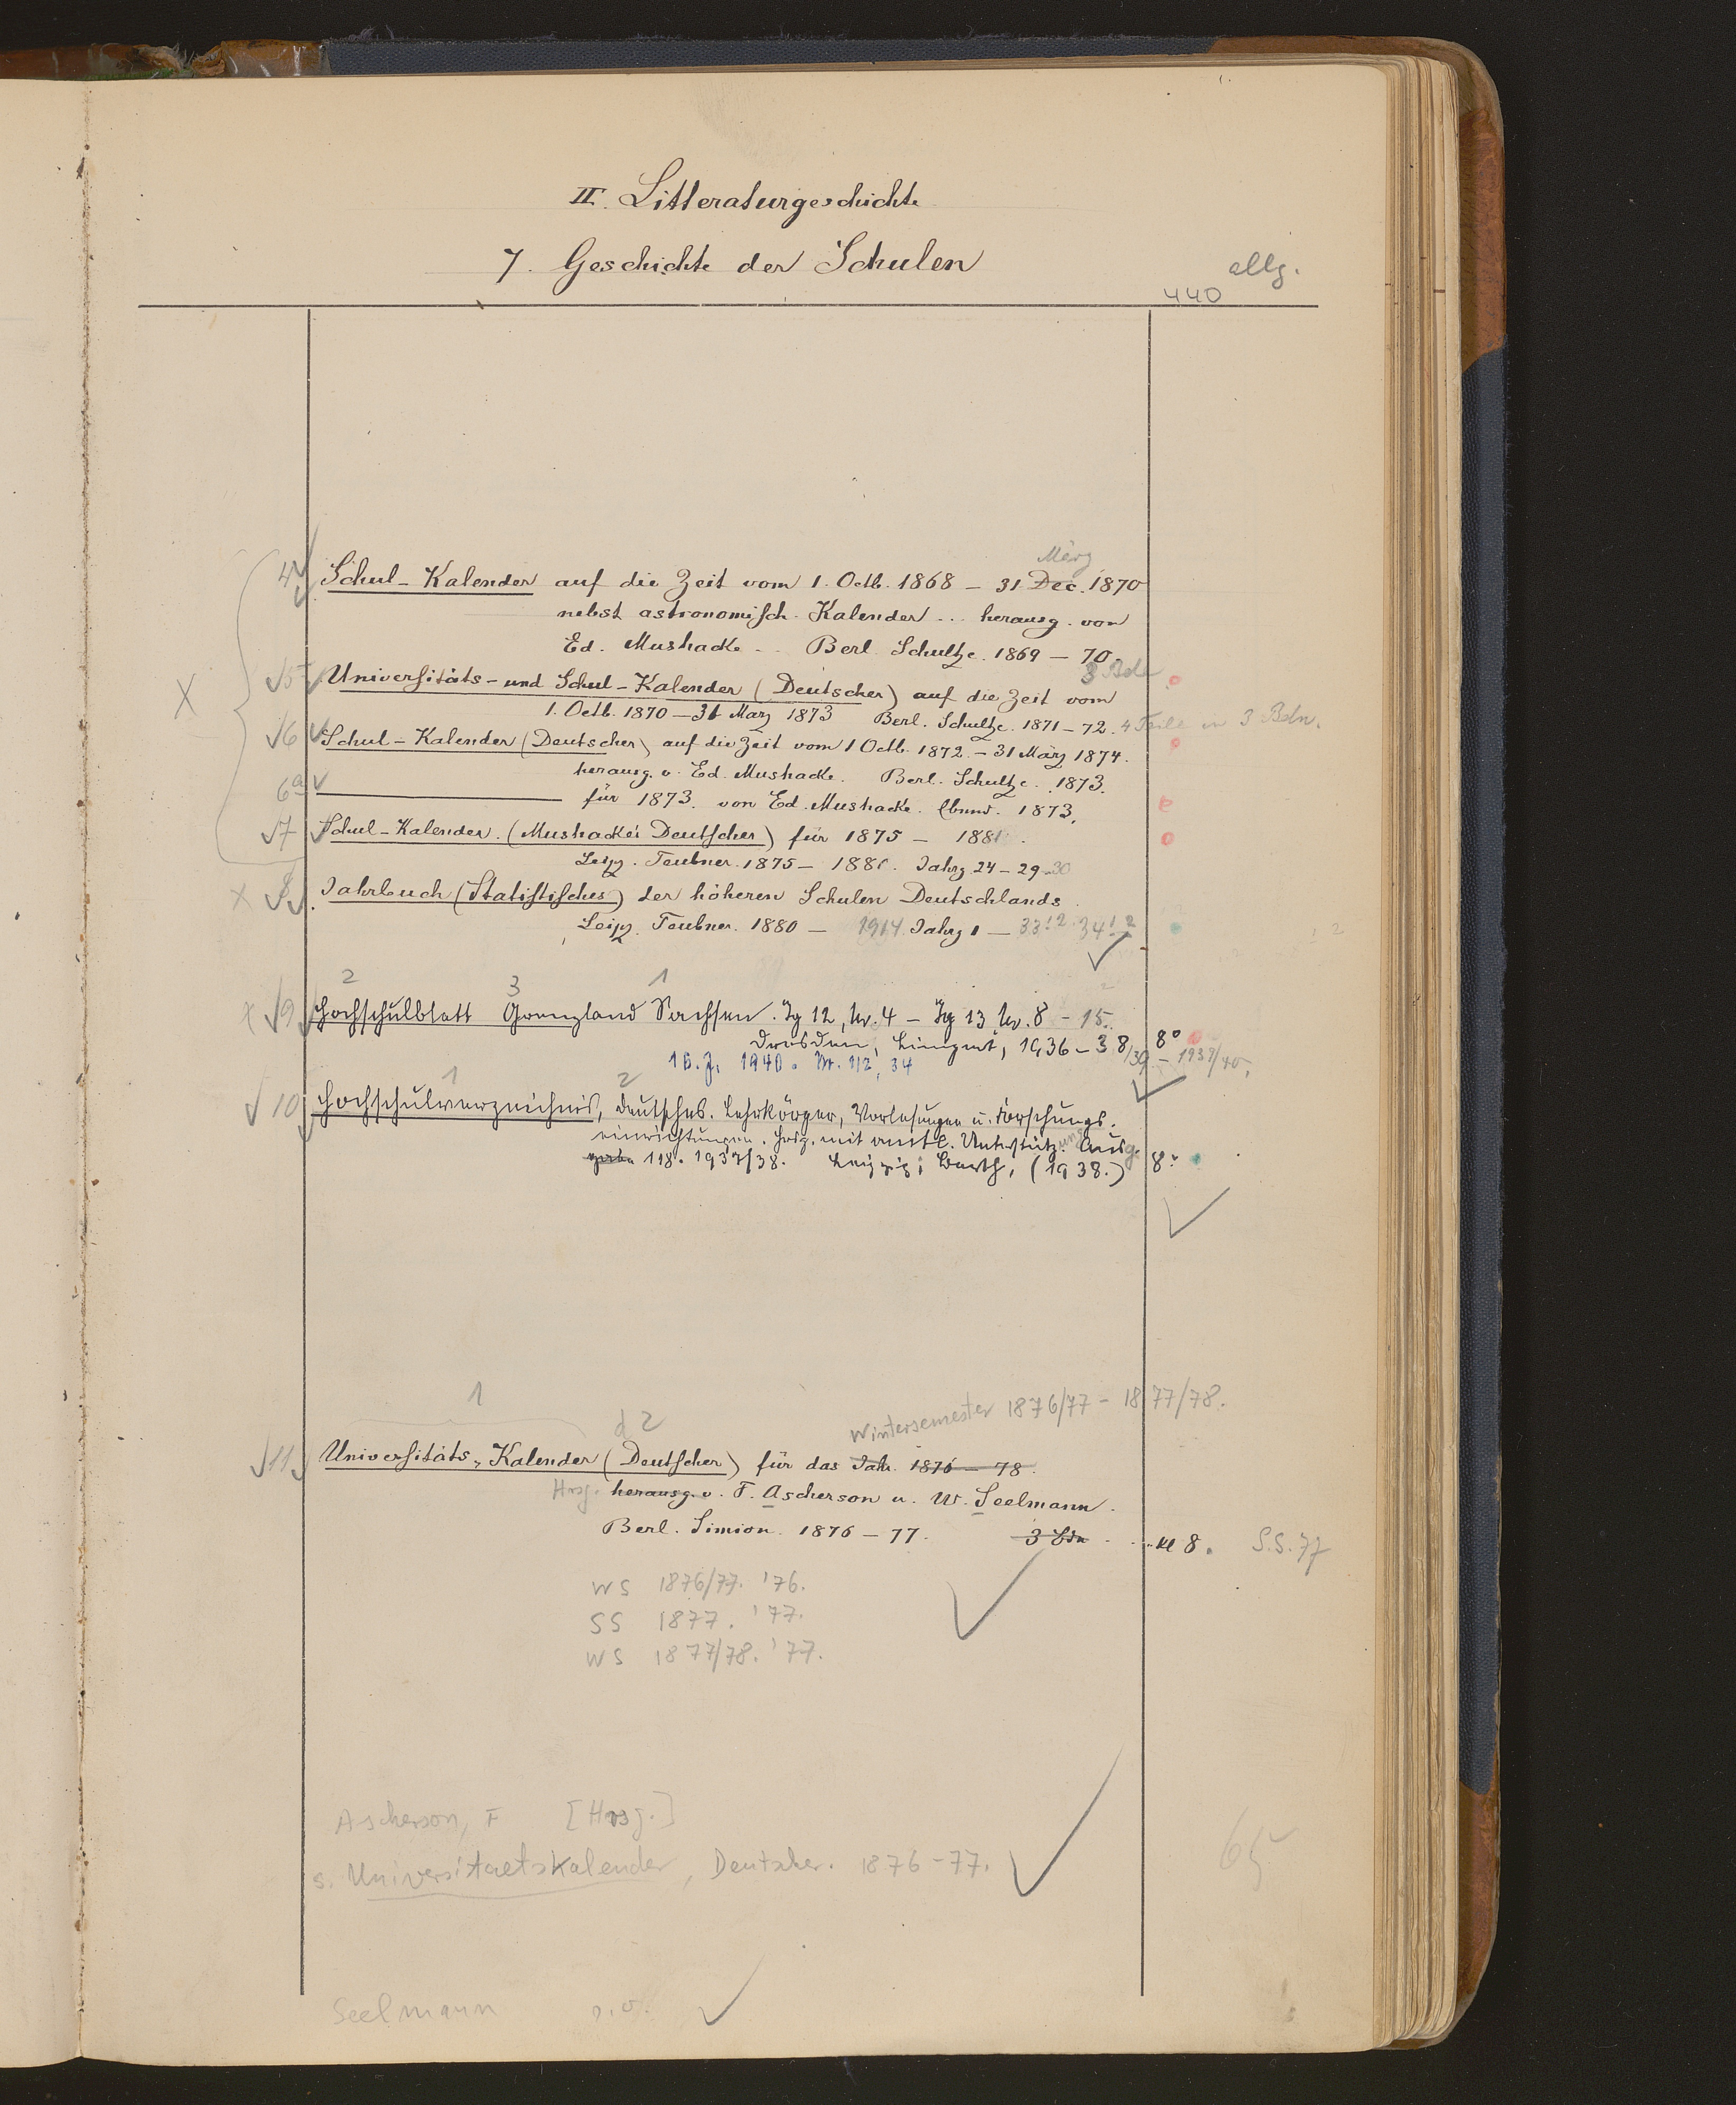 II. Litteraturgeschichte
7. Geschichte der Schulen
allg.
440
März
4 Schul-Kalender auf die Zeit vom 1. Octb. 1868 – 31 Dec. 1870
nebst astronomisch. Kalender ... herausg. von
Ed. Mushacke .. Berl. Schultze. 1869 – 70
3 Bde
5 Universitäts- und Schul-Kalender (Deutscher) auf die Zeit vom
1. Octb. 1870 – 31 März 1873 Berl. Schultze. 1871 – 72. 4 Teile in 3 Bdn.
X
6 Schul-Kalender (Deutscher) auf die Zeit vom 1 Octb. 1872. – 31 März 1874.
herausg. v. Ed. Mushacke. Berl. Schultze. 1873.
6a für 1873. von Ed. Mushacke. Ebend. 1873.
7 Schul-Kalender. (Mushacke's Deutscher) für 1875 – 1881.
Leipz. Teubner. 1875 – 1881. Jahrg. 24 – 29 30
X 8 Jahrbuch (Statistisches) der höheren Schulen Deutschlands
Leipz. Teubner. 1880 – 1914. Jahrg 1 – 33 1.2. 34 1.2
2 3 1
x 9 Hochschulblatt Grenzland Sachsen. Jg 12, Nr. 4 – Jg 13 Nr. 8 – 15.
Dresden, Limpert, 1936 – 38/39 – 1939/40. 8°
16. J. 1940. Nr. 1/2, 34
1 2
10 Hochschulverzeichnis, Deutsches. Lehrkörper, Vorlesungen u. Forschungs-
einrichtungen. Hrsg. mit amtl. Unterstützung. Ausg.
118. 1937/38. Leipzig: Barth, (1938.) 8°
1 d 2 Wintersemester 1876/77 – 1877/78.
11 Universitäts-Kalender (Deutscher) für das Jahr 1876 – 78.
Hrsg. herausg. v. F. Ascherson u. W. Seelmann.
Berl. Simion. 1876 – 77. 3 Bde kl 8. S.S. 77
WS 1876/77. '76.
SS 1877. '77.
WS 1877/78. '77.
Ascherson, F [Hrsg.]
s. Universitaetskalender, Deutscher. 1876-77.
65
Seelmann